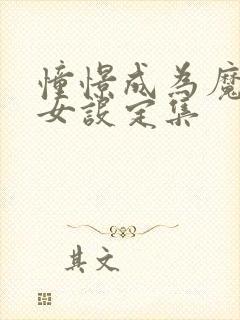 憧憬成為魔
女設定集
其文